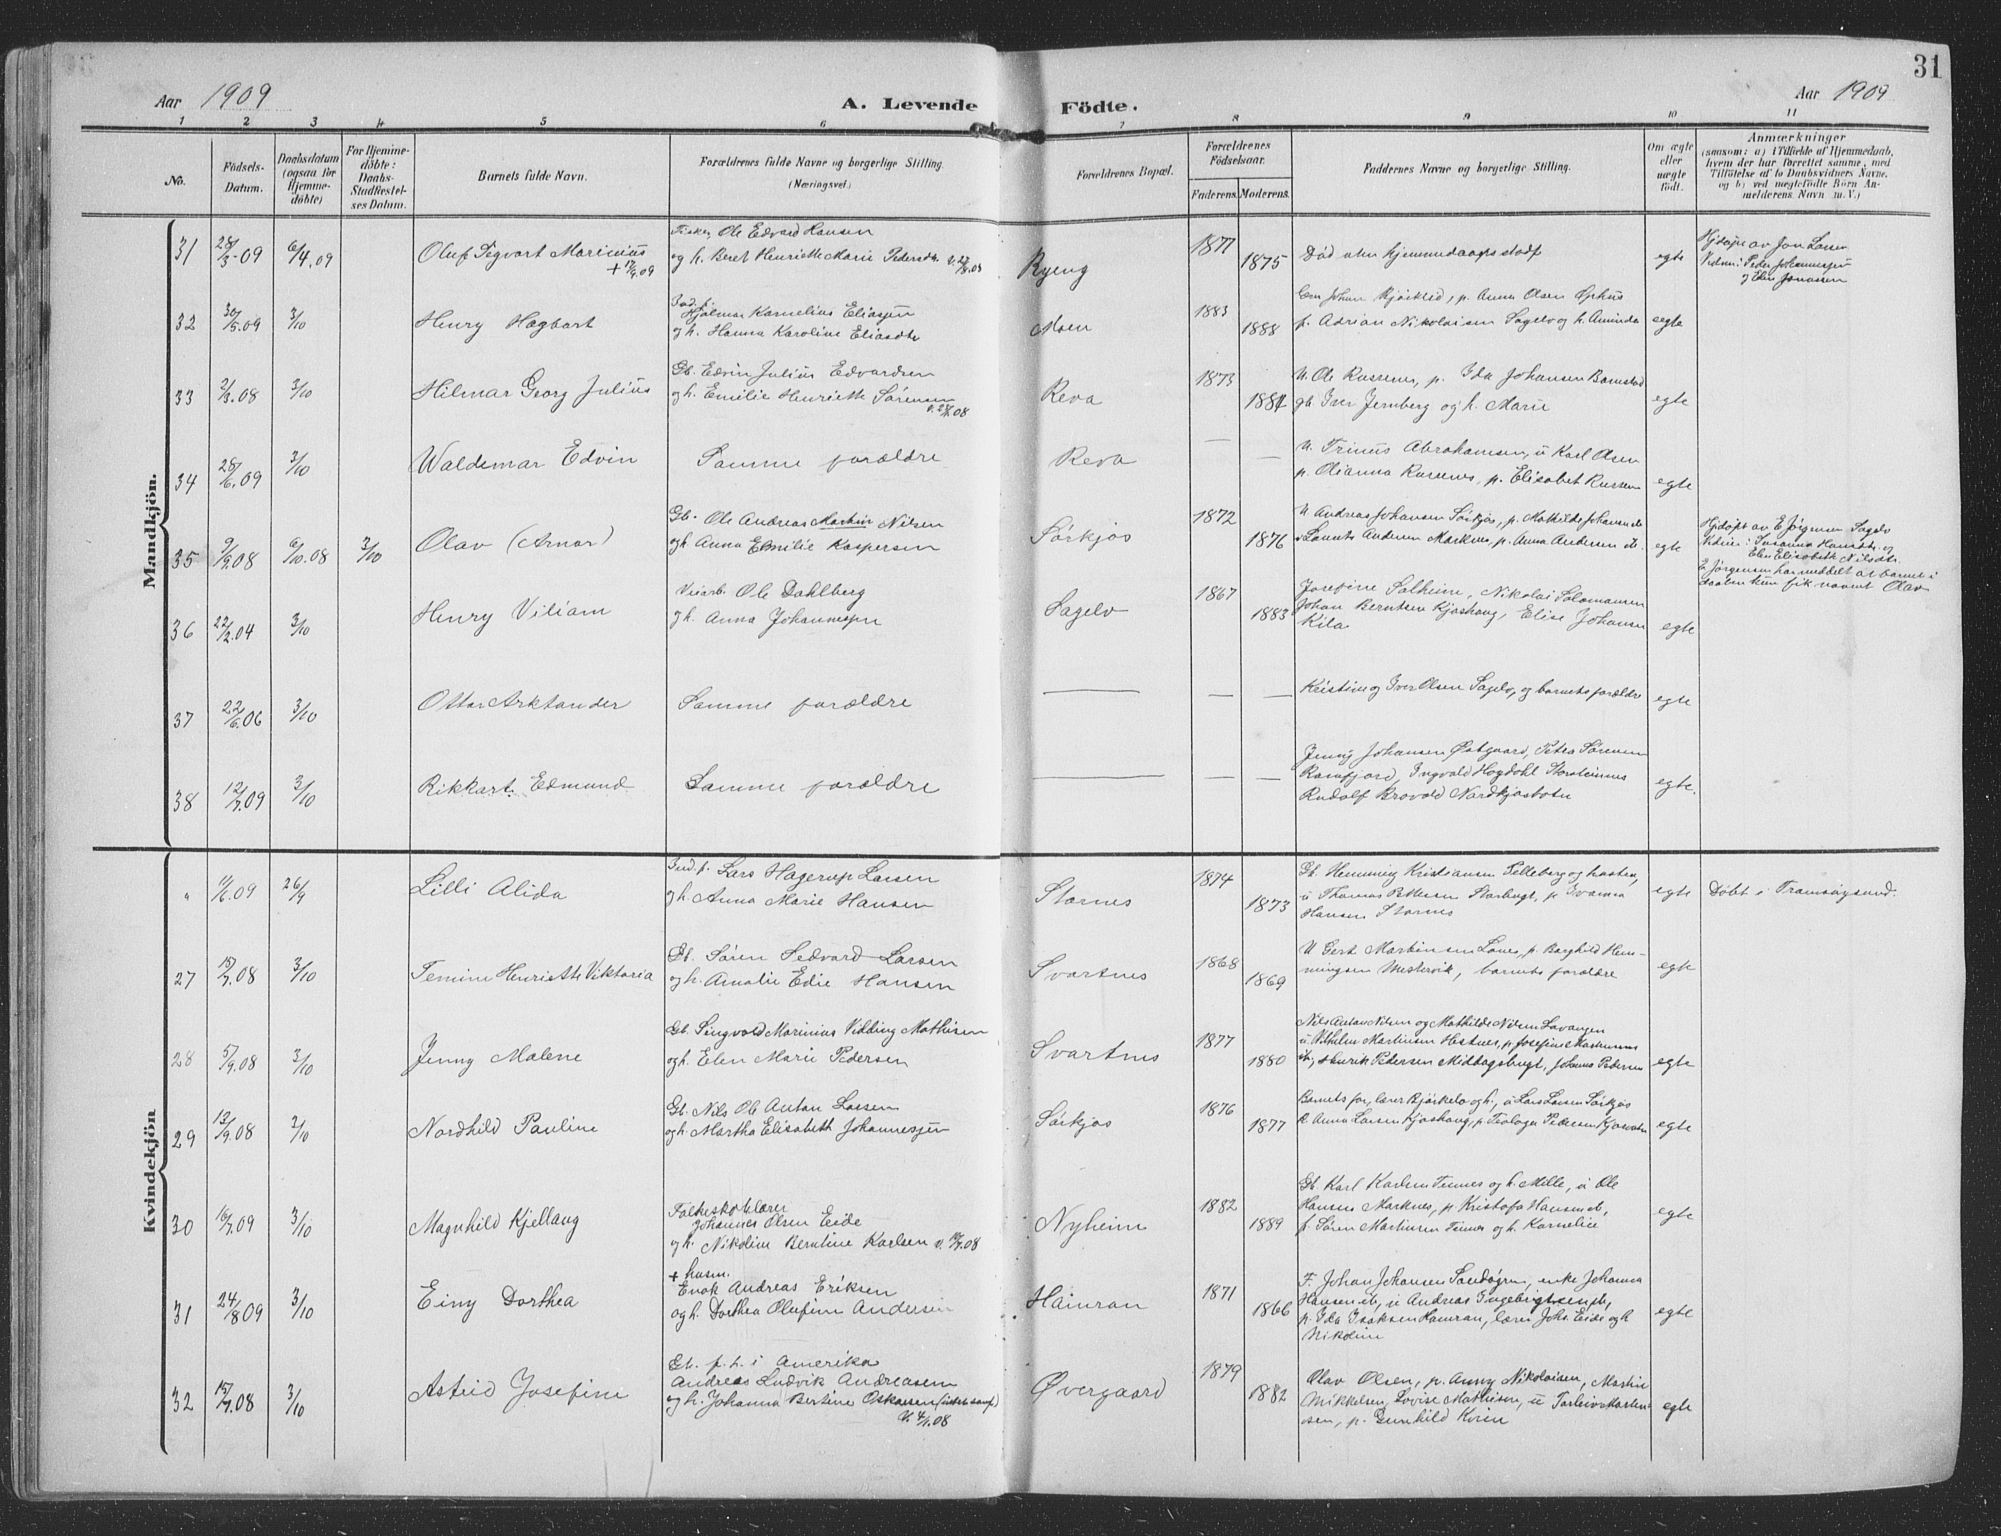 31
Aar 1909
A. Levende Födte.
Aar 1909
1 2 3 4 5 6 7 8 9 10 11
No.
Födsels-
Datum.
Daabsdatum
(ogsaa for
Hjemme-
döbte)
For Hjemme-
döbte:
Daabs-
Stadfestel-
ses Datum.
Barnets fulde Navn.
Forældrenes fulde Navne og borgerlige Stilling.
(Næringsvei.)
Forældrenes Bopæl.
Forældrenes
Födselsaar.
Faderens. Moderens.
Faddernes Navne og borgerlige Stilling.
Om ægte
eller
uægte
födt.
Anmærkninger
(saasom: a) i Tilfælde af Hjemmedaab,
hvem der har forrettet samme, med
Tilföielse af to Daabsvidners Navne,
og b) ved uægtefödte Börn An-
melderens Navn m. V.)
Mandkjön.
31 28/3-09 6/4.09 Oluf Sigvart Marinius
+ 17/4.09
Fisker Ole Edvard Hansen
og h. Beret Henriette Marie Pedersdt.
Ryeng 1877 1875
Död uten hjemmedaaps stadf
egte
Hjdöpt av Jon Larsen
Vidner: Peder Johannesen
og Elen Jonassen
32 30/5.09 3/10 Henry Hagbart
Hjalmar Kornelius Eliasen
og h. Hanna Karoline Eliasdtr
Moen 1883 1888
Johan Bjorklid, p. Anna Olsen Ophus
f. Adrian Nikolaisen Sagelv og h. Aminda
egte
33 2/3.08 3/10 Hilmar Georg Julius
Gb. Edvin Julius Edvardsen
og h. Emilie Henriette Sørensen
Reva 1873 1884
U. Ole Russenes, p. Ida Johansen Bomstad
gb. Iver Jernberg og h. Marie
egte
34 28/6.09 3/10 Waldemar Edvin
Samme forældre
Reva — —
U. Trinus Abrahamsen, u Karl Olsen
p. Olianna Russenes, p. Elisabet Russen
egte
35 9/9.08 6/10.08 3/10 Olav (Arnar)
Gb. Ole Andreas Martin Nilsen
og h. Anna Emilie Kaspersen
Sørkjos 1872 1876
U Andreas Johansen Sörkjos, p. Mathilde Johansen ds
Andersen Markenes, p. Anna Andersen ds.
egte
Hjdöpt av E Jörgensen Sagelv
Vidner: Susanna Hansdtr. og
Elen Elisabeth Nilsdtr.
E Jörgensen har meddelt at barnet i
daaben kun fik navnet Olav
36 22/2.04 3/10 Henry Viliam
Veiarb. Ole Dahlberg
og h. Anna Johannesen
Sagelv 1867 1883
Josefine Solheim, Nikolai Solomansen
Johan Berntsen Kjoshaug, Elise Johansen
Kila
egte
37 22/6.06 3/10 Ottar Arktander
Samme forældre
— — —
Kristine og Iver Olsen Sagelv, og barnets forældre
egte
38 12/7.09 3/10 Rikkart Edmund
Samme forældre
— — —
Jenny Johansen Østgaard, Petra Sørensen
Ramfjord, Ingvald Hogdahl Storsteinnes
Rudolf Brovold Nordkjosbotn
egte.
Kvindekjön
" 11/6.09 26/9 Lilli Alida
Ind.f. Lars Hagerup Larsen
og h. Anna Marie Hansen
Stornes 1874 1873
Gb. Hemming Kristiansen Pilleberg og hustru,
u Thomas Pettersen Storbugt, p Ivanna
Hansen Stornes
egte
Döbt i Tromsøysund.
27 18/7.08 3/10 Temine Henriette Viktoria
Gb. Sören Sedvard Larsen
og h. Amalie Edie Hansen
Svartnes 1868 1869
U Gert Martinsen Lanes, p. Borghild Hem-
mingsen Mestervik, barnets forældre
egte
28 5/9.08 3/10 Jenny Malene
Gb. Singvald Marinius Vidding Mathisen
og h. Elen Marie Pedersen
Svartnes 1877 1880
Nils Anton Nilsen og Mathilde Nilsen Lavangen
u Vilhelm Martinsen Hestnes, p. Josefine Markusen
ds, Henrik Pedersen Middagsbugt, Johanna Pedersen
egte
29 13/9.08 3/10 Nordhild Pauline
Gb. Nils Ob Anton Larsen
og h. Martha Elisabeth Johannesjen
Sørkjos 1876 1877
Barnets far, lærer Bjørkelo og h., u Lars Larsen Sörkjos
p. Anna Larsen Kjoshaug, p. Teologa Pedersen Kjosvatn
egte
30 16/7.09 3/10 Magnhild Kjellaug
Folkeskolelærer
Johannes Olsen Eide
og h. Nikoline Berntine Karlsen v. 08
Nyheim 1882 1889
Gb. Karl Karlsen Tennes og h. Mille, u Ole
Hansen Markenes, p Kristofa Hansen ds,
f. Søren Martinsen Tennes og h. Karnelie
egte
31 24/8 09 3/10 Einy Dorthea
+ husm.
Enok Andreas Eriksen
og h. Dorthea Olufine Andersen
Hamran 1871 1866
F. Johan Johansen Sandøgren, enke Johanna
Hansen ds, u Andreas Ingebrigtsen ds,
p. Ida Isaksen Hamran, lærer Johs. Eide og h
Nikoline
egte
32 15/7.08 3/10 Astrid Josefine
Gb. f. t. i Amerika
Andreas Ludvik Andreasen
og h. Johanna Bertine Oskarsen
V. 4/1.08
Øvergaard 1879 1882
Olav Olsen, p. Anny Nikolaisen, Martin
Mikkelsen, Lovise Mathisen, u Torleiv Marten-
sen, p. Gunhild Kvien
egte